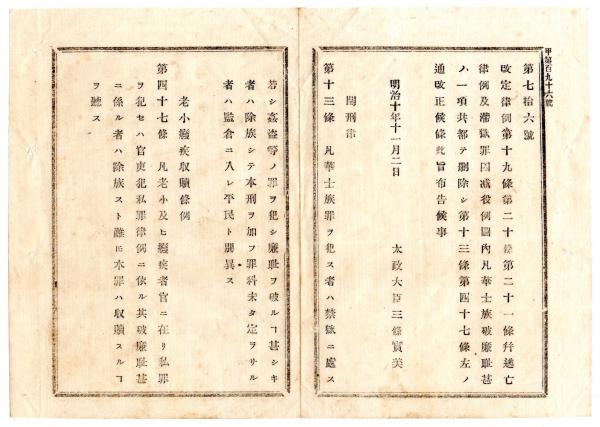 甲第百九十六號
第七拾六號
改定律例第十九條第二十條第二十一條幷逃亡
律例及滯獄罪囚減役例圖內凡華士族破廉耻甚
ノ一項共都テ刪除シ第十三條第四十七條左ノ
通改正候條此旨布告候事
明治十年十一月二日
太政大臣三條實美
閏刑律
第十三條 凡華士族罪ヲ犯ス者ハ禁獄ニ處ス
若シ姦盜等ノ罪ヲ犯シ廉耻ヲ破ルヿ甚シキ
者ハ除族シテ本刑ヲ加フ罪科未タ定ラサル
者ハ監倉ニ入レ平民ト別異ス
老小癈疾收贖條例
第四十七條 凡老小及ヒ癈疾者官ニ在リ私罪
ヲ犯セハ官吏犯私罪律例ニ依ル其破廉耻甚
ニ係ル者ハ除族スト雖𪜈本罪ハ收贖スルヿ
ヲ聽ス